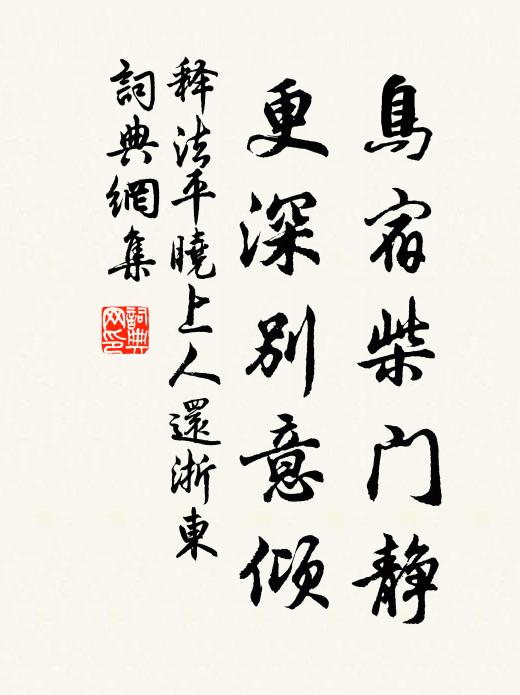 鳥宿柴门静
更深别意倾
释法平曉上人還浙東
詞典網集
詞典网印